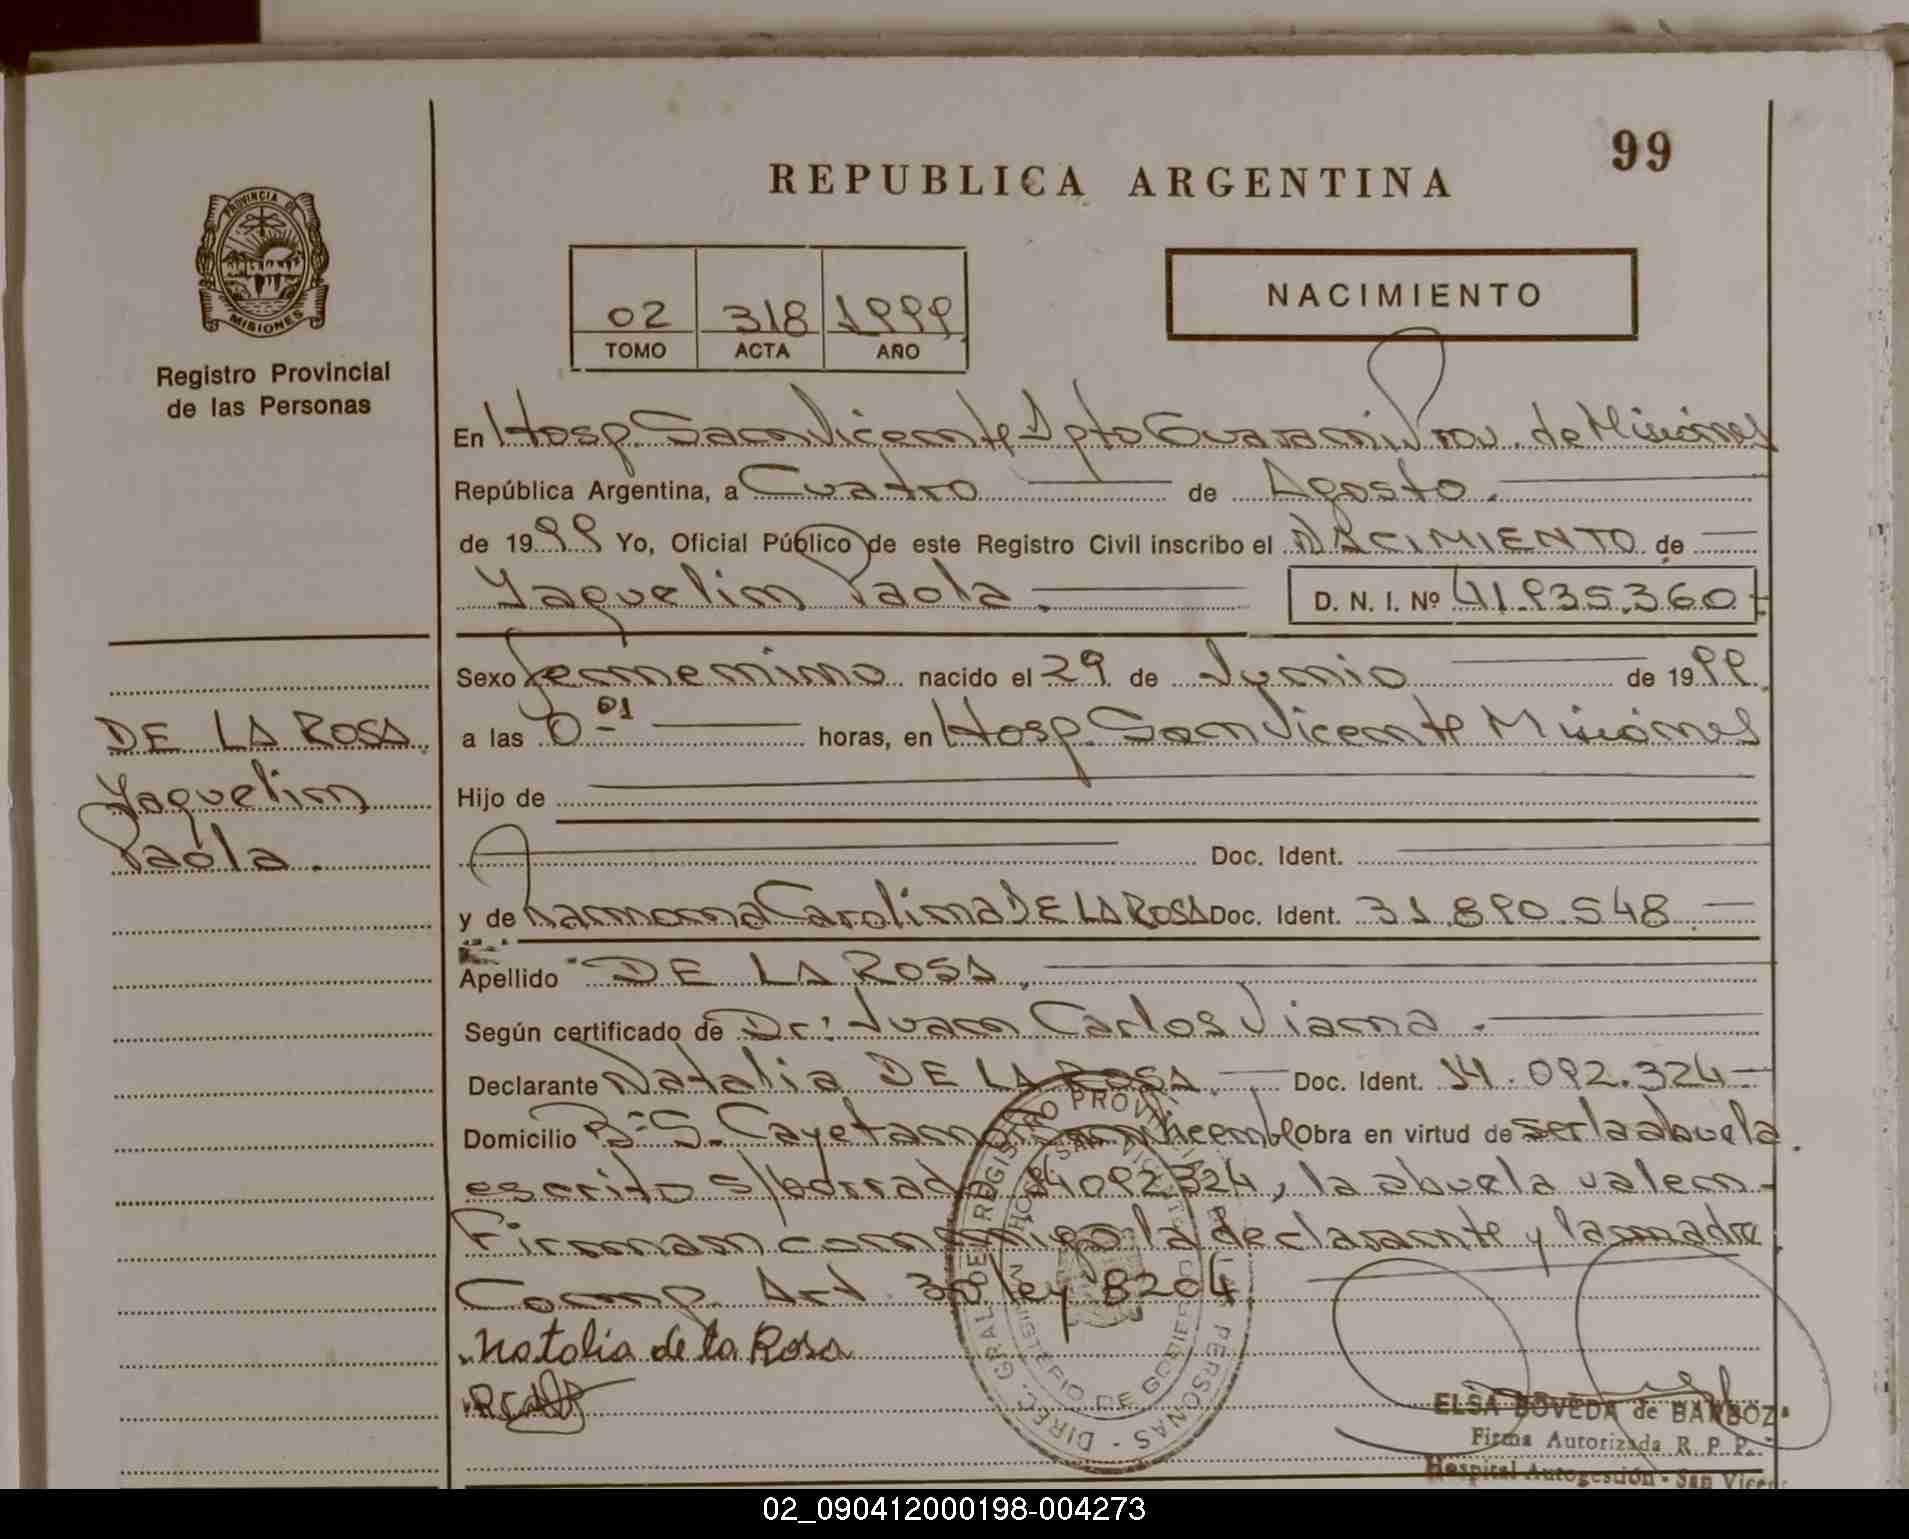 99
REPUBLICA ARGENTINA
PROVINCIA DE
MISIONES
Registro Provincial
de las Personas
02 318 1999
TOMO ACTA AÑO
NACIMIENTO
En Hosp. San Vicente Dpto Guarani Prov. de Misiones
República Argentina, a Cuatro de Agosto.
de 1999 Yo, Oficial Público de este Registro Civil inscribo el NACIMIENTO de
Yaquelin Paola. D. N. I. Nº 41.935.360
Sexo femenino nacido el 29 de Junio de 1999.
a las 0 01 horas, en Hosp. San Vicente Misiones
DE LA ROSA
Yaquelin
Paola.
Hijo de
Doc. Ident.
y de Ramona Carolina DE LA ROSA Doc. Ident. 31.890.548
Apellido DE LA ROSA
Según certificado de Dr: Juan Carlos Viana.
Declarante Natalia DE LA ROSA Doc. Ident. 14.092.324
Domicilio Bº S. Cayetano San Vicente Obra en virtud de ser la abuela.
escrito s/borrado 14092324, la abuela valen
Firman conmigo la declarante y la madre
Comp. Art. 30 ley 8204
Natalia de la Rosa
DIREC. GRAL. DE REGISTRO PROVINCIAL DE LAS PERSONAS
MINISTERIO DE GOBIERNO
HOSP. SAN VICENTE
ELSA BOVEDA de BARBOZA
Firma Autorizada R. P. P.
Hospital Autogestión - San Vicen
02_090412000198-004273